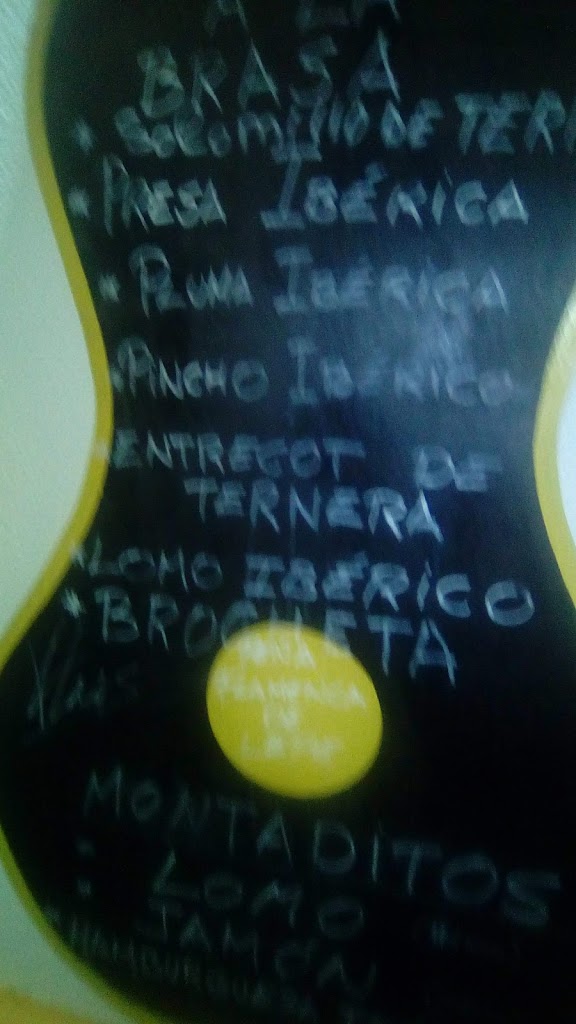 A LA
BRASA
* SOLOMILLO DE TER
* PRESA IBÉRICA
* PLUMA IBÉRICA
* PINCHO IBÉRICO
* ENTRECOT DE
TERNERA
* LOMO IBÉRICO
* BROCHETA
PEÑA
FLAMENCA
DE
MONTADITOS
- LOMO
- JAMÓN
* HAMBURGUESA